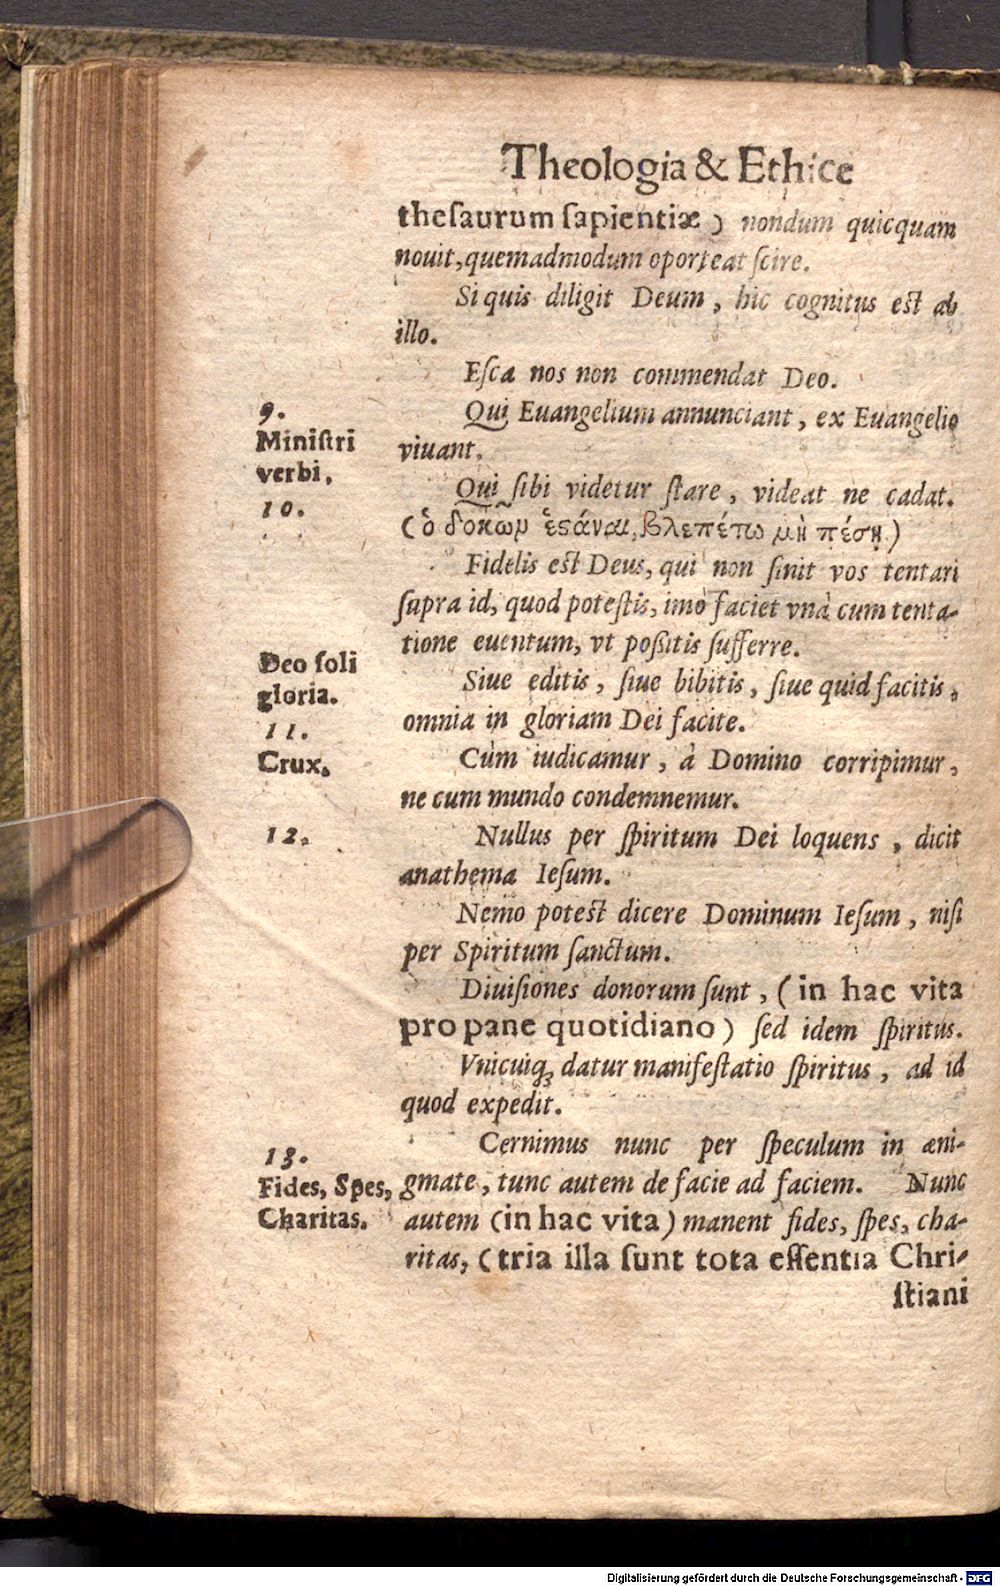 Theologia & Ethice
theſaurum ſapientiæ) nondum quicquam
nouit, quemadmodum oporteat ſcire.
Si quis diligit Deum, hic cognitus est ab
illo.
Eſca nos non commendat Deo.
9.
Miniſtri
verbi.
Qui Euangelium annunciant, ex Euangelio
viuant.
10.
Qui ſibi videtur ſtare, videat ne cadat.
(ὁ δοκῶν ἑϛάναι, βλεπέτω μὴ πέσῃ)
Fidelis est Deus, qui non ſinit vos tentari
ſupra id, quod poteſtis, imò faciet vnà cum tenta-
tione euentum, vt poßitis ſufferre.
Deo ſoli
gloria.
Siue editis, ſiue bibitis, ſiue quid facitis,
omnia in gloriam Dei facite.
11.
Crux.
Cùm iudicamur, à Domino corripimur,
ne cum mundo condemnemur.
12.
Nullus per ſpiritum Dei loquens, dicit
anathema Ieſum.
Nemo potest dicere Dominum Ieſum, niſi
per Spiritum ſanctum.
Diuiſiones donorum ſunt, (in hac vita
pro pane quotidiano) ſed idem ſpiritus.
Vnicuiq; datur manifeſtatio ſpiritus, ad id
quod expedit.
13.
Fides, Spes,
Charitas.
Cernimus nunc per ſpeculum in æni-
gmate, tunc autem de facie ad faciem. Nunc
autem (in hac vita) manent fides, ſpes, cha-
ritas, (tria illa ſunt tota eſſentia Chri-
ſtiani
Digitalisierung gefördert durch die Deutsche Forschungsgemeinschaft - DFG